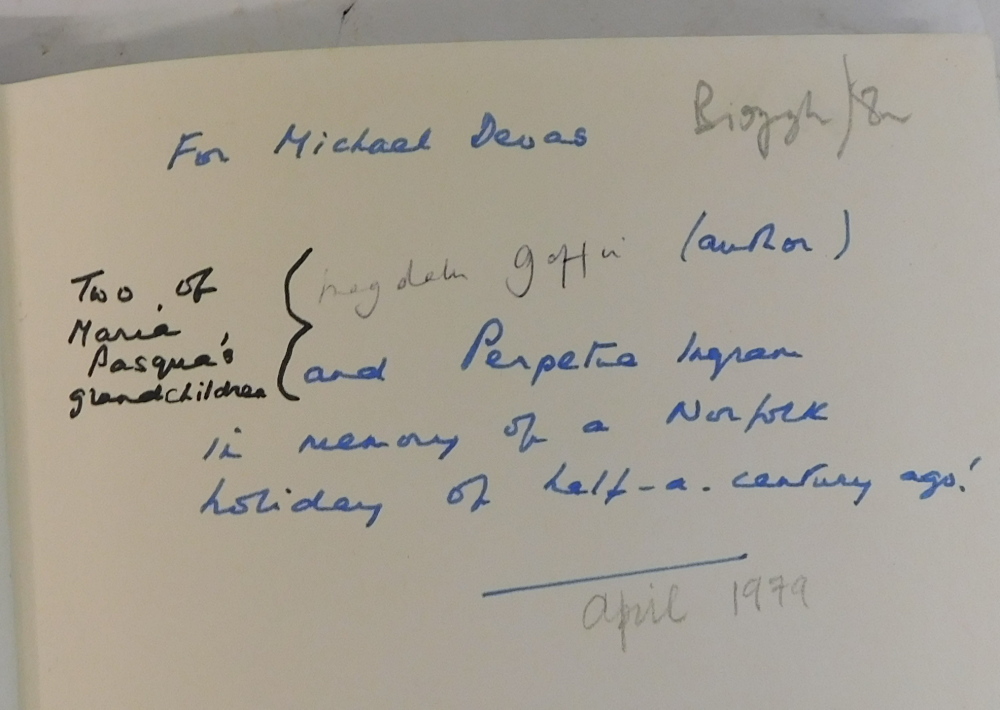 Biograph/8n
For Michael Devas
Magdalen Goffin (author)
Two of
Maria
Pasqua's
grandchildren
and Perpetua Ingram
in memory of a Norfolk
holiday of half-a-century ago!
April 1979